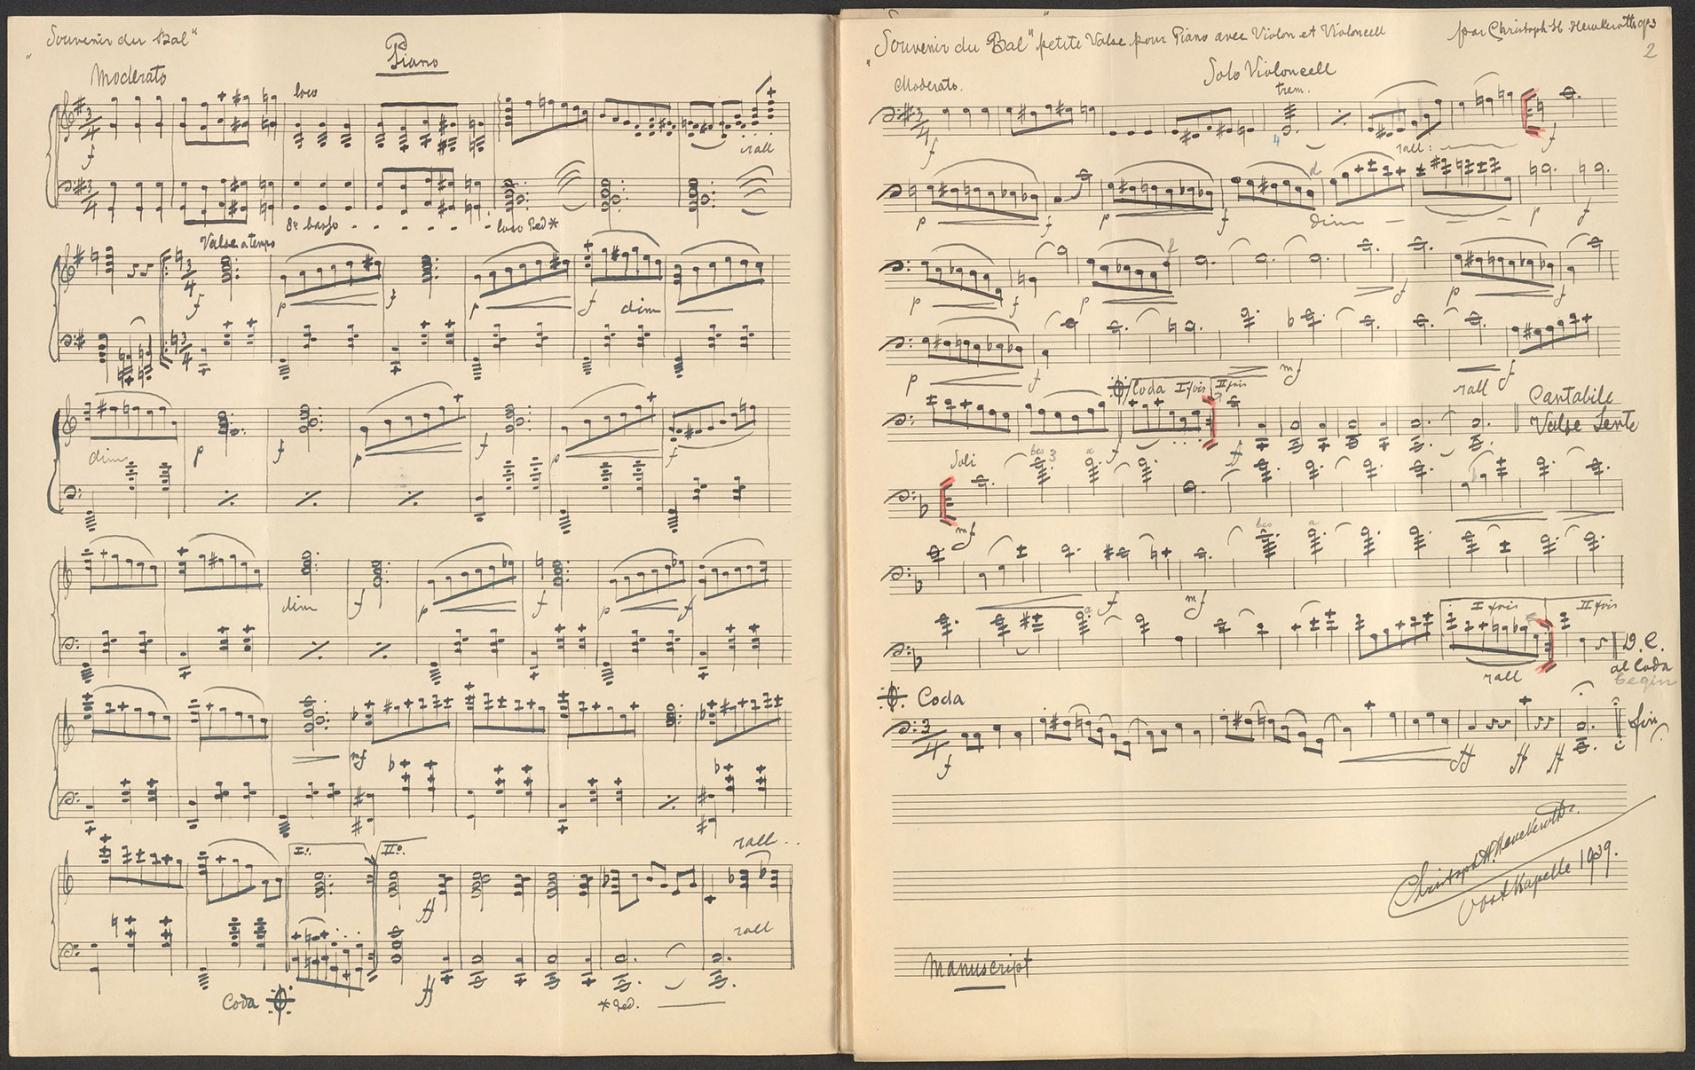 "Souvenir du Bal"
Piano
Moderato
loco
f
rall
8va basso - - - - - - loco Ped *
Valse a tempo
f p f p f dim
dim p f p f p f
dim f p f p f
mf
rall . .
I. IIo.
ff
rall
ff
Coda
* Ped.
"Souvenir du Bal" petite Valse pour Piano avec Violon et Violoncell
par Christoph H. Heuckeroth op 3
2
Solo Violoncell
Moderato.
trem.
4
f rall: f
p f p f dim p f
p f p f p f
p f mf rall f
Coda I fois II fois
Cantabile
Valse Lente
f ff
Soli
3
mf
f mf
I fois II fois
rall
D.C.
al Coda
begin
Coda
3/4
f ff ff ff
fin
Christoph H. Heuckeroth.
Oostkapelle 1939.
Manuscript